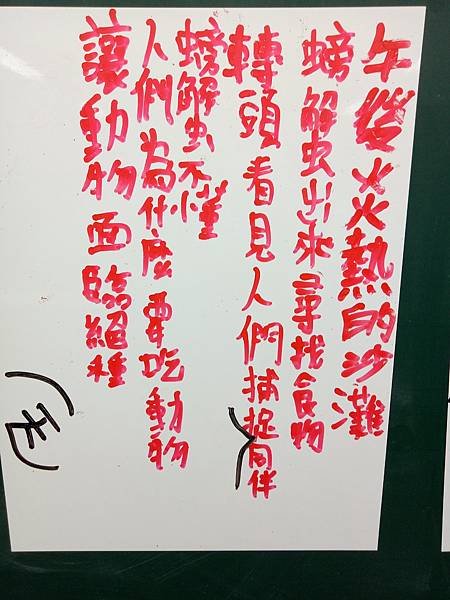 午後火火熱的沙灘
螃解虫出來尋找食物
轉頭看見人們捕捉同伴
螃解虫不懂
人們為什麼要吃動物
讓動物面臨絕種